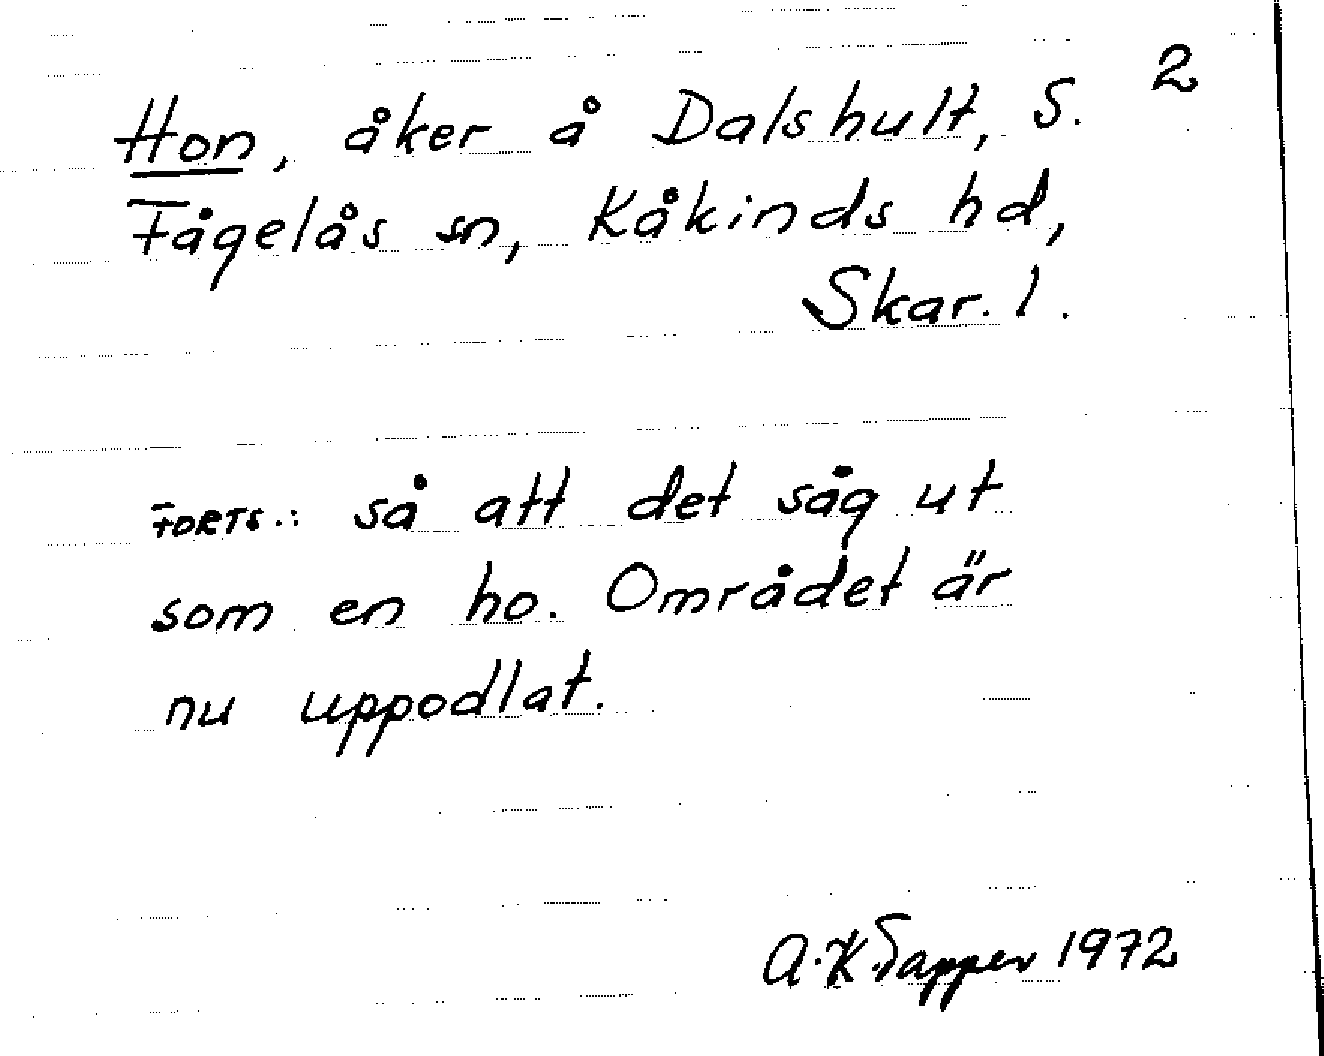 2
Hon, åker å Dalshult, S.
Fågelås sn, Kåkinds hd,
Skar. l.
FORTS.: så att det såg ut
som en ho. Området är
nu uppodlat.
A.K. Tapper 1972